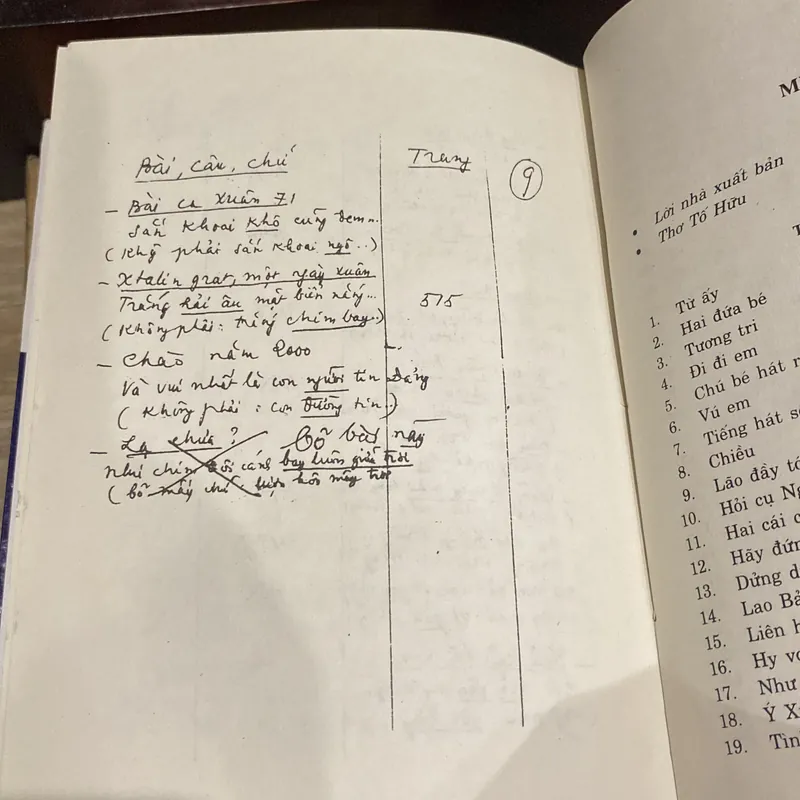 Bài, câu, chữ
Trang
9
– Bài ca Xuân 71
Sắn khoai khô cũng đem...
(Khg phải sắn khoai ngô...)
– Xtalin grat, một ngày xuân
Trắng hải âu mặt biển nắng...
515
(Không phải: trắng chim bay..)
– Chào năm 2000
–.
Và vui nhất là con người tin Đảng
(Không phải: con đường tin..)
– Lạ chưa? bỏ bài này
như chim ôi cánh bay luôn giữa trời
(bỏ mấy chữ: trời
MỤ
• Lời nhà xuất bản
• Thơ Tố Hữu
T
1. Từ ấy
2. Hai đứa bé
3. Tương tri
4. Đi đi em
5. Chú bé hát r
6. Vú em
7. Tiếng hát s
8. Chiều
9. Lão đầy tớ
10. Hỏi cụ Ng
11. Hai cái c
12. Hãy đứn
13. Dửng d
14. Lao Bả
15. Liên h
16. Hy vọ
17. Như
18. Ý X
19. Tìn